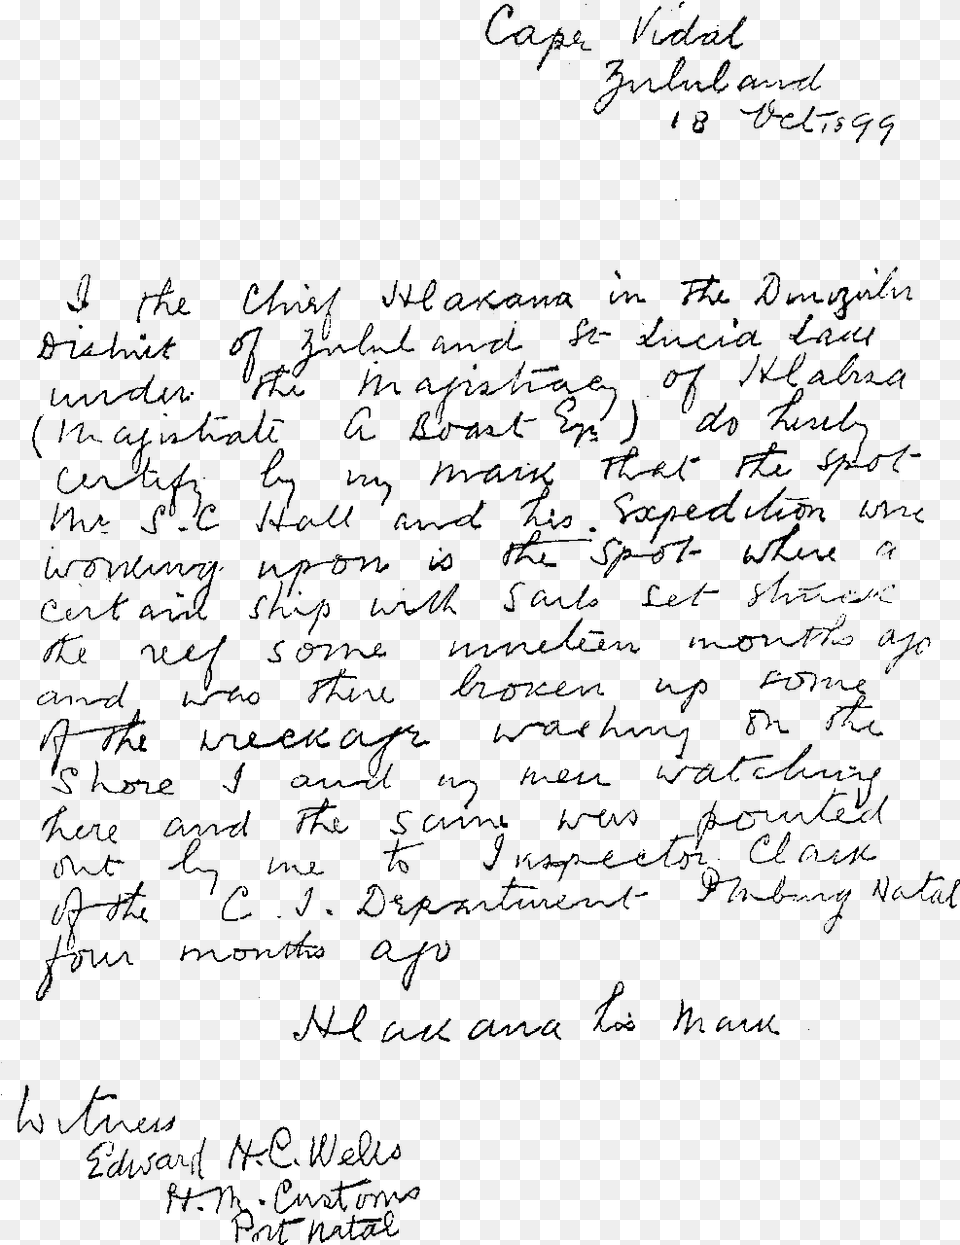 Cape Vidal
Zululand
18 Oct 1899
I the Chief Hlakana in the
District of Zululand St Lucia Lake
under the Magistracy of Hlabisa
(Magistrate A Boast Esq) do hereby
certify by my mark that the spot
Mr S.C Hall and his Expedition were
working upon is the spot where a
certain ship with sails set struck
the reef some nineteen months ago
and was there broken up some
of the wreckage washing on the
shore I and my men watching
here and the same was pointed
out by me to Inspector Clark
of the C.I. Department PMburg Natal
four months ago
Hlakana his mark
Witness
Edward H.C. Wells
H.M. Customs
Port Natal